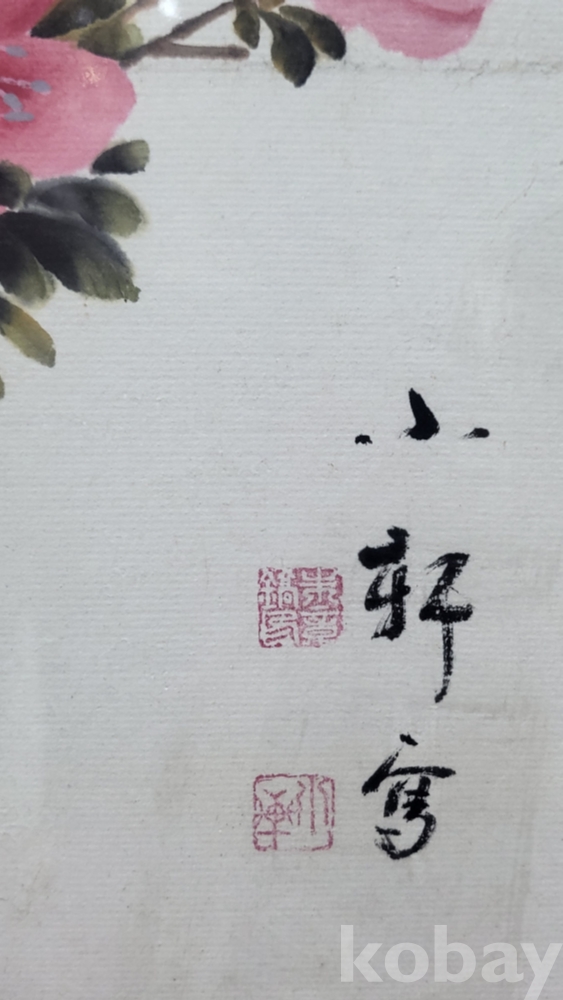 小軒寫
小軒
kobay